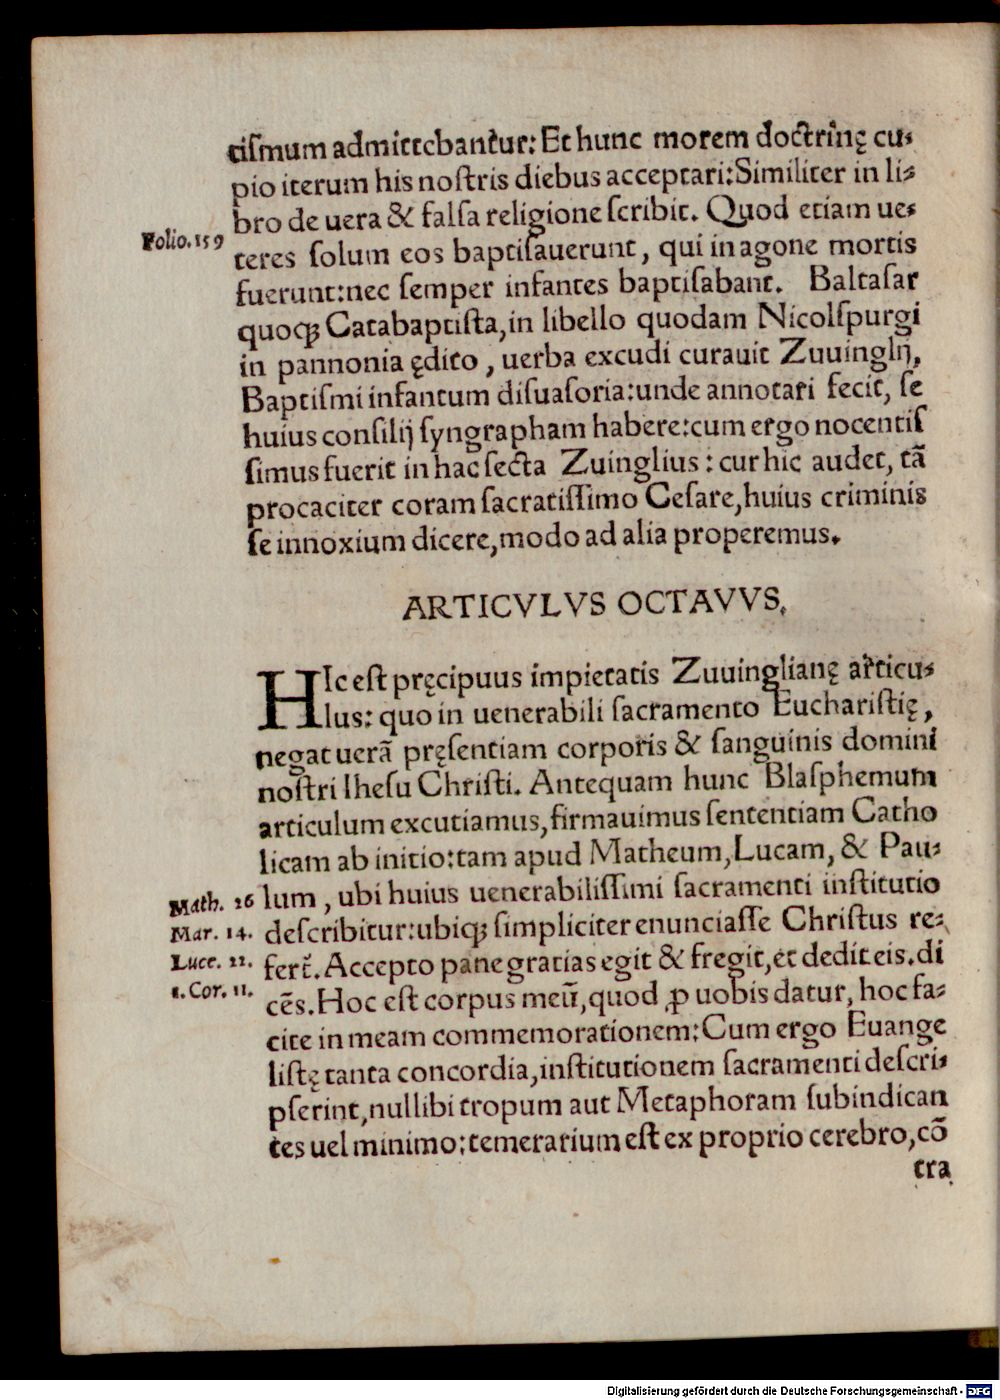 tiſmum admittebantur: Et hunc morem doctrinę cu⸗
pio iterum his noſtris diebus acceptari: Similiter in li⸗
bro de uera & falſa religione ſcribit. Quod etiam ue⸗
Folio. 159
teres ſolum eos baptiſauerunt, qui in agone mortis
fuerunt: nec ſemper infantes baptiſabant. Baltaſar
quoqꝫ Catabaptiſta, in libello quodam Nicolſpurgi
in pannonia ędito, uerba excudi curauit Zuuinglĳ,
Baptiſmi infantum diſuaſoria: unde annotari fecit, ſe
huius conſilĳ ſyngrapham habere: cum ergo nocentiſ
ſimus fuerit in hac ſecta Zuinglius: cur hic audet, tā
procaciter coram ſacratiſſimo Ceſare, huius criminis
ſe innoxium dicere, modo ad alia properemus.
ARTICVLVS OCTAVVS.
HIc eſt pręcipuus impietatis Zuuinglianę articu⸗
lus: quo in uenerabili ſacramento Euchariſtię,
negat uerā pręſentiam corporis & ſanguinis domini
noſtri Iheſu Chriſti. Antequam hunc Blaſphemum
articulum excutiamus, firmauimus ſententiam Catho
licam ab initio: tam apud Matheum, Lucam, & Pau⸗
Math. 26
lum, ubi huius uenerabiliſſimi ſacramenti inſtitutio
Mar. 14.
deſcribitur: ubiqꝫ ſimpliciter enunciaſſe Chriſtus re⸗
Luce. 22.
fert̄. Accepto pane gratias egit & fregit, et dedit eis. di
1. Cor. 11.
cēs. Hoc eſt corpus meū, quod ꝓ uobis datur, hoc fa⸗
cite in meam commemorationem: Cum ergo Euange
liſtę tanta concordia, inſtitutionem ſacramenti deſcri⸗
pſerint, nullibi tropum aut Metaphoram ſubindican
tes uel minimo: temerarium eſt ex proprio cerebro, cō
tra
Digitalisierung gefördert durch die Deutsche Forschungsgemeinschaft - DFG